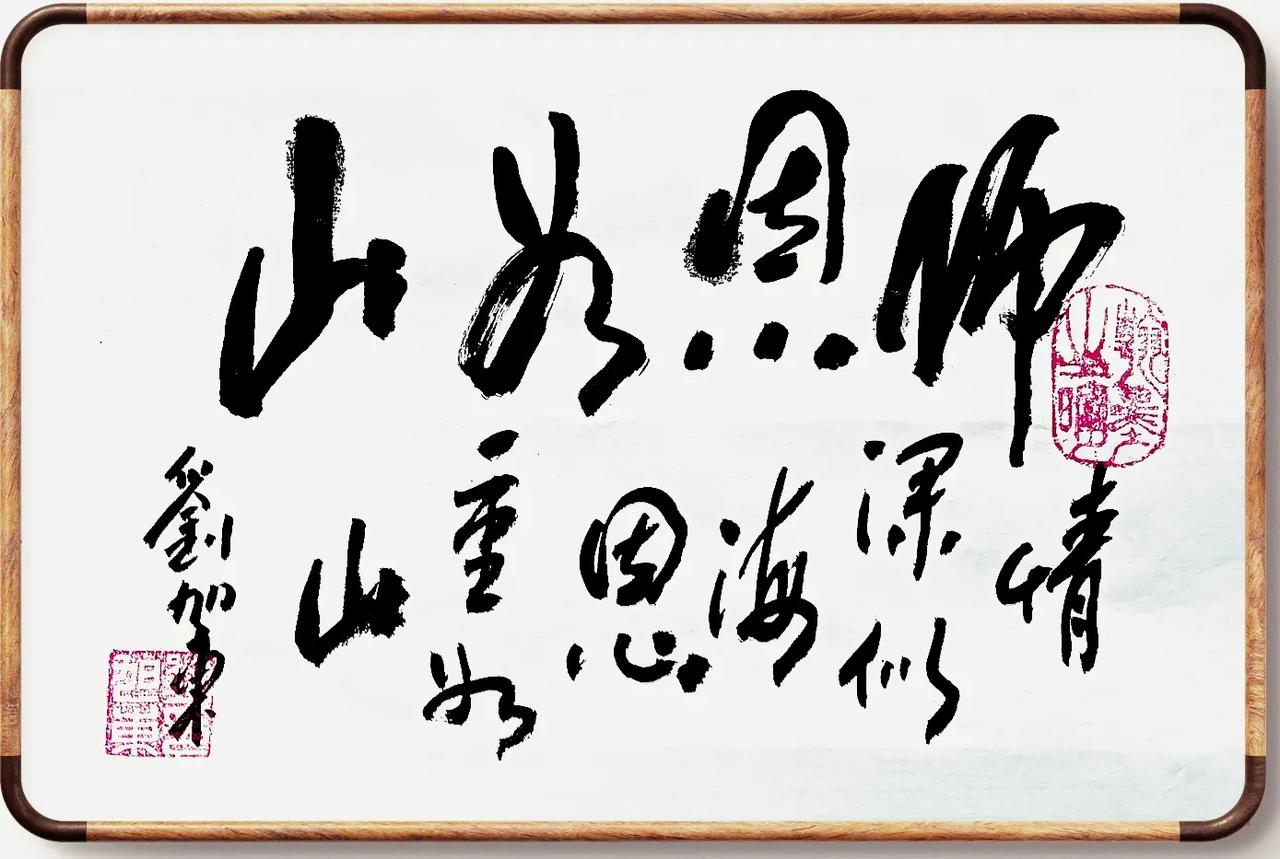 师恩如山
情深似海恩重如山
劉加東